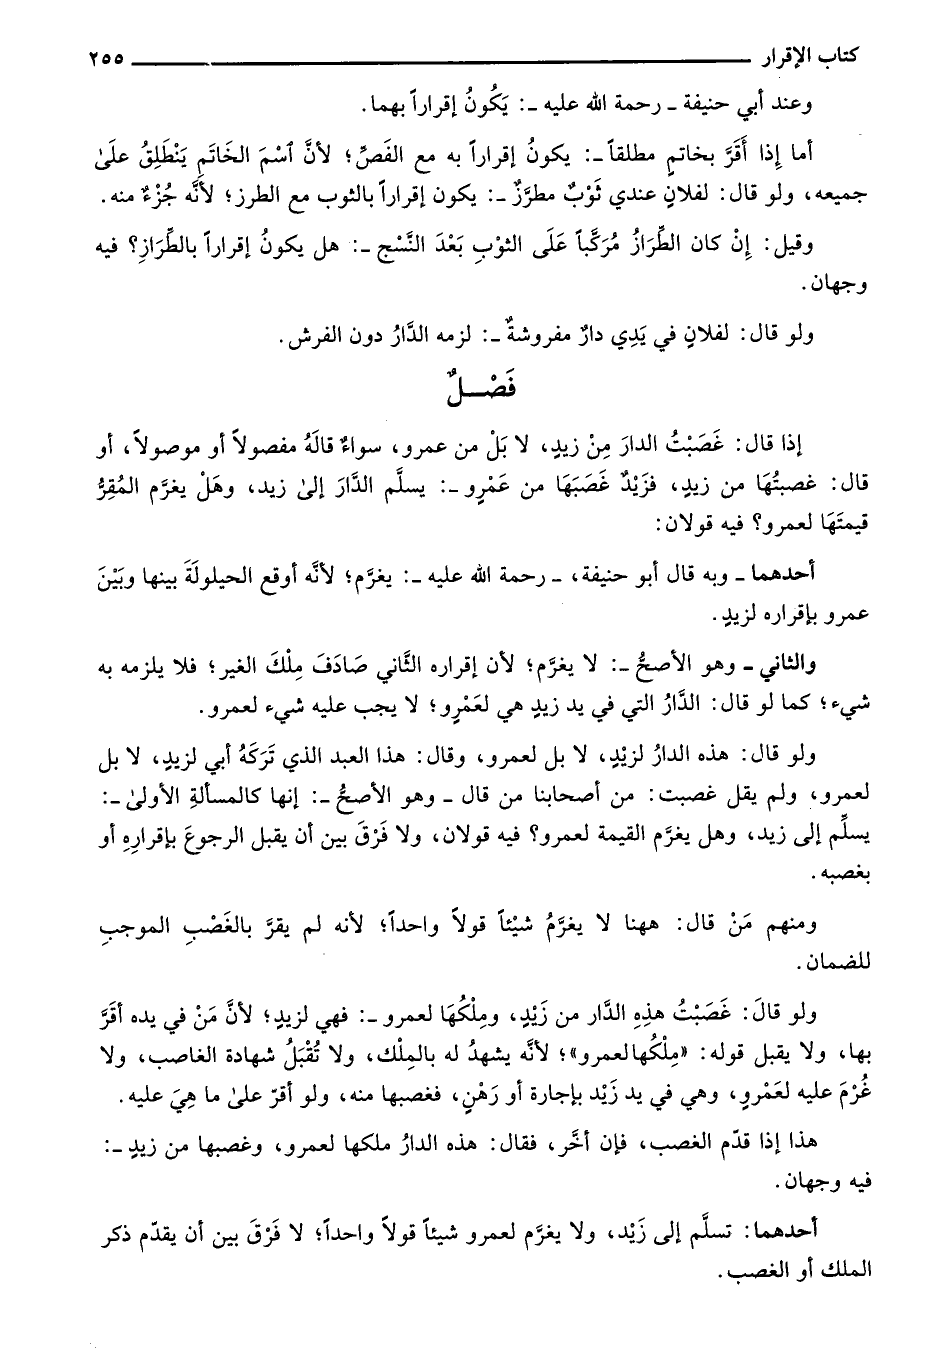 كتاب الإقرار ٢٥٥
وعند أبي حنيفة ـ رحمة الله عليه ـ: يَكُونُ إقراراً بهما.
أما إِذا أَقَرَّ بخاتمٍ مطلقاً ـ: يكونُ إقراراً به مع الفَصِّ؛ لأنَّ ٱسْمَ الخَاتَمِ يَنْطَلِقُ علَىٰ
جميعه، ولو قال: لفلانٍ عندي ثَوْبٌ مطرَّزٌ ـ: يكون إقراراً بالثوب مع الطرز؛ لأنَّه جُزْءٌ منه.
وقيل: إِنْ كان الطِّرَازُ مُرَكَّباً عَلَى الثوْبِ بَعْدَ النَّسْجِ ـ: هل يكونُ إقراراً بالطِّرَازِ؟ فيه
وجهان.
ولو قال: لفلانٍ في يَدِي دارٌ مفروشةٌ ـ: لزمه الدَّارُ دون الفرش.
فَصْـــلٌ
إذا قال: غَصَبْتُ الدارَ مِنْ زيدٍ، لا بَلْ من عمرو، سواءٌ قالَهُ مفصولاً أو موصولاً، أو
قال: غصبتُهَا من زيدٍ، فزَيْدٌ غَصَبَهَا من عَمْرِو ـ: يسلَّم الدَّارَ إلىٰ زيد، وهَلْ يغرَّم المُقِرُّ
قيمتَهَا لعمرو؟ فيه قولان:
أحدهما ـ وبه قال أبو حنيفة، ـ رحمة الله عليه ـ: يغرَّم؛ لأنَّه أوقع الحيلولَةَ بينها وبَيْنَ
عمرو بإقراره لزيدٍ.
والثاني ـ وهو الأصحُّ ـ: لا يغرَّم؛ لأن إقراره الثَّاني صَادَفَ مِلْكَ الغير؛ فلا يلزمه به
شيء؛ كما لو قال: الدَّارُ التي في يد زيدٍ هي لعَمْرِو؛ لا يجب عليه شيء لعمرو.
ولو قال: هذه الدارُ لزيْدٍ، لا بل لعمرو، وقال: هذا العبد الذي تَرَكَهُ أبي لزيدٍ، لا بل
لعمرو، ولم يقل غصبت: من أصحابنا من قال ـ وهو الأصحُّ ـ: إنها كالمسألةِ الأولىٰ ـ:
يسلِّم إلى زيد، وهل يغرَّم القيمة لعمرو؟ فيه قولان، ولا فَرْقَ بين أن يقبل الرجوعَ بإقرارِهِ أو
بغصبه.
ومنهم مَنْ قال: ههنا لا يغرَّمُ شيْئاً قولاً واحداً؛ لأنه لم يقرَّ بالغَصْبِ الموجبِ
للضمان.
ولو قالَ: غَصَبْتُ هذِهِ الدَّار من زَيْدٍ، ومِلْكُهَا لعمرو ـ: فهي لزيدٍ؛ لأنَّ مَنْ في يده أقَرَّ
بها، ولا يقبل قوله: «مِلْكُها لعمرو»؛ لأنَّه يشهدُ له بالمِلْك، ولا تُقْبَلُ شهادة الغاصب، ولا
غُرْمَ عليه لعَمْرٍو، وهي في يد زَيْد بإجارة أو رَهْنٍ، فغصبها منه، ولو أقرّ علىٰ ما هِيَ عليه.
هذا إذا قدّم الغصب، فإن أخَّر، فقال: هذه الدارُ ملكها لعمرو، وغصبها من زيدٍ ـ:
فيه وجهان.
أحدهما: تسلَّم إلى زَيْد، ولا يغرَّم لعمرو شيئاً قولاً واحداً؛ لا فَرْقَ بين أن يقدّم ذكر
الملك أو الغصب.